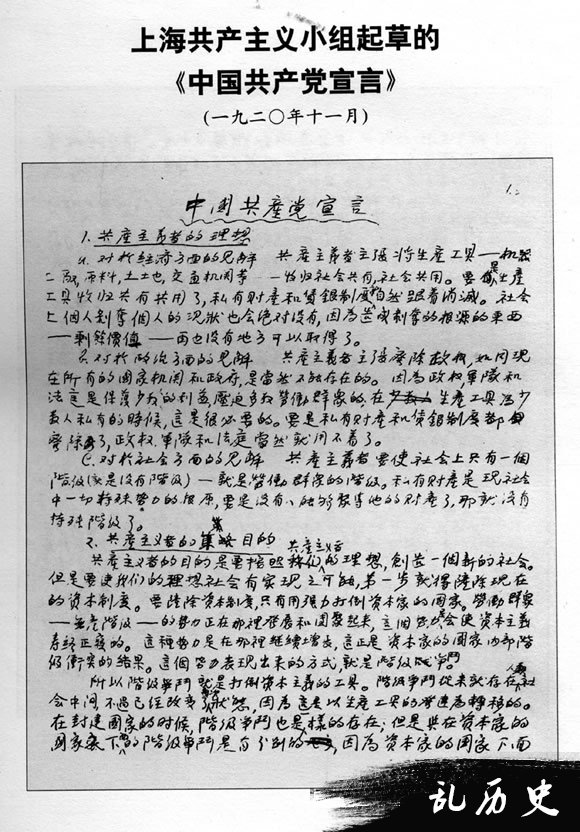 上海共产主义小组起草的
《中国共产党宣言》
(一九二〇年十一月)
1.
中國共產党宣言
1. 共產主義者的理想
a. 对於經济方面的見解 共產主義者主張将生產工具——机器
工厰,原料,土地,交通机関等——收归社会共有,社会共用。要是生產
工具收归共有共用了,私有財產和賃銀制度就自然跟着消滅。社会
上個人剥奪個人的現狀也会绝对没有,因為造成剥奪的根源的東西
——剩餘價值——再也没有地方可以取得了。
b. 对於政治方面的見解 共產主義者主張廢除政权,如同現
在所有的國家机関和政府,是當然不能存在的。因為政权軍隊和
法庭是保護少数人的利益,壓迫多数勞働群眾的,在生產工具為少
数人私有的時候,這是很必要的。要是私有財產和賃銀制度都
廢除了,政权,軍隊和法庭當然就用不着了。
c. 对於社会方面的見解 共產主義者要使社会上只有一個
階級(就是没有階級)——就是勞働群眾的階級。私有財產是現社会
中一切特殊势力的根原,要是没有人能够聚集他的財產了,那就没有
特殊階級了。
2. 共產主义者的目的
共產主义者的目的是要按照共產主义者的理想,創造一個新的社会。
但是要使我们的理想社会有實現之可能,第一步就得鏟除現在
的資本制度。要鏟除資本制度,只有用强力打倒資本家的國家。勞働群眾
——無產階級——的势力正在那裡發展和團聚起来,這個势力会使資本主義
寿終正寝的。這種势力是在那裡継續增長,這正是資本家的國家内部階
級衝突的結果。這個势力表現出来的方式,就是階級争鬥。
所以階級争鬥就是打倒資本主義的工具。階級争鬥從来就存在人類社
会中間,不過已經改变狀態,因為這是以生產工具的發達為轉移的。
在封建國家的时候,階級争鬥也是一樣的存在;但是與在資本家的
國家底下的階級争鬥是有分别的,因為資本家的國家下面
乱历史